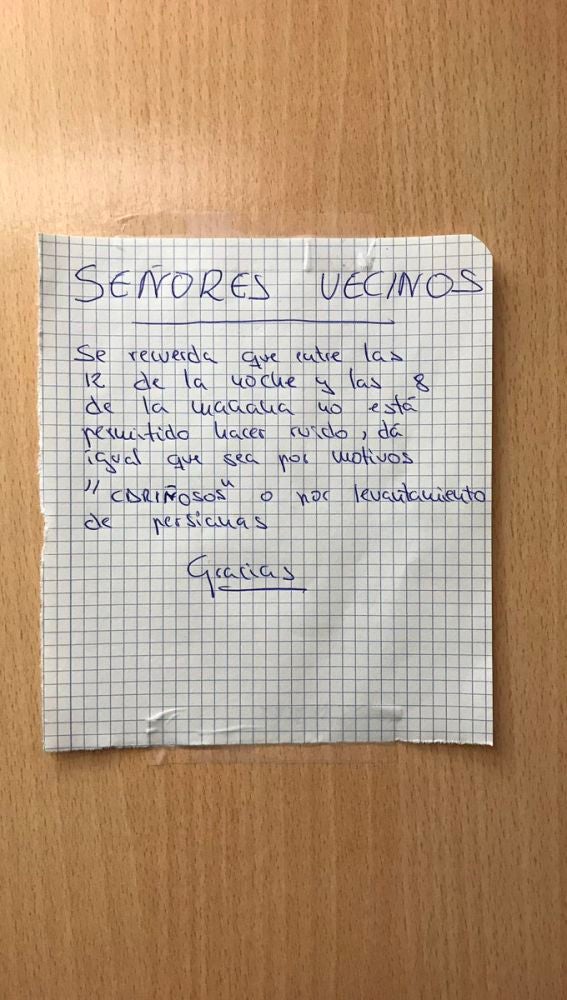 SEÑORES VECINOS
Se recuerda que entre las
12 de la noche y las 8
de la mañana no está
permitido hacer ruido, dá
igual que sea por motivos
"CARIÑOSOS" o por levantamiento
de persianas
Gracias